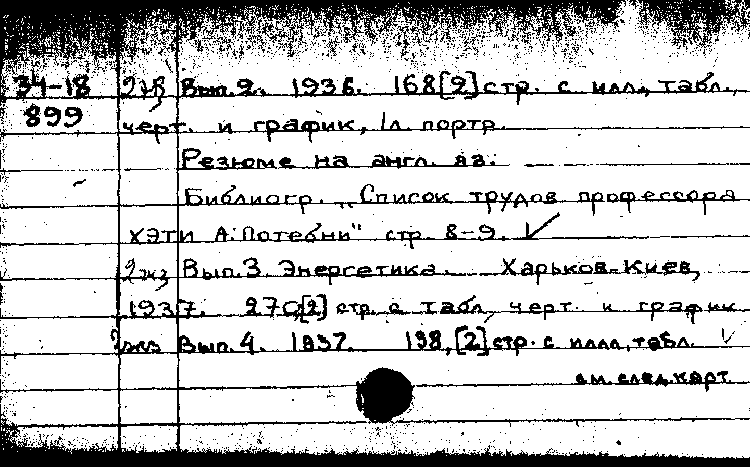 34-18 2эк Вып. 2. 1936. 168[2] стр. с илл., табл.,
899 черт. и график, 1л. портр.
Резюме на англ. яз.
Библиогр. „Список трудов профессора
ХЭТИ А. Потебни" стр. 8-9. ✓
2экз Вып. 3. Энергетика. Харьков-Киев,
1937. 270,[2] стр. с табл., черт. и график
2экз Вып. 4. 1937. 198,[2] стр. с илл., табл.
см. след. карт.